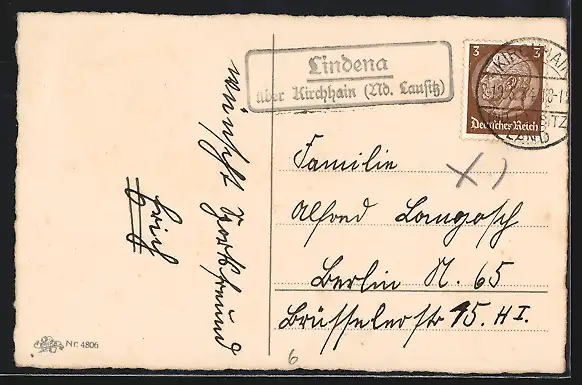 Lindena
über Kirchhain (Nd. Lausitz)
3 3
Deutsches Reich
KIRCHHAIN
wünscht
Erich
Familie
Alfred Langosch
Berlin N. 65
Brüsselerstr 15. H I.
Nr. 4806
6